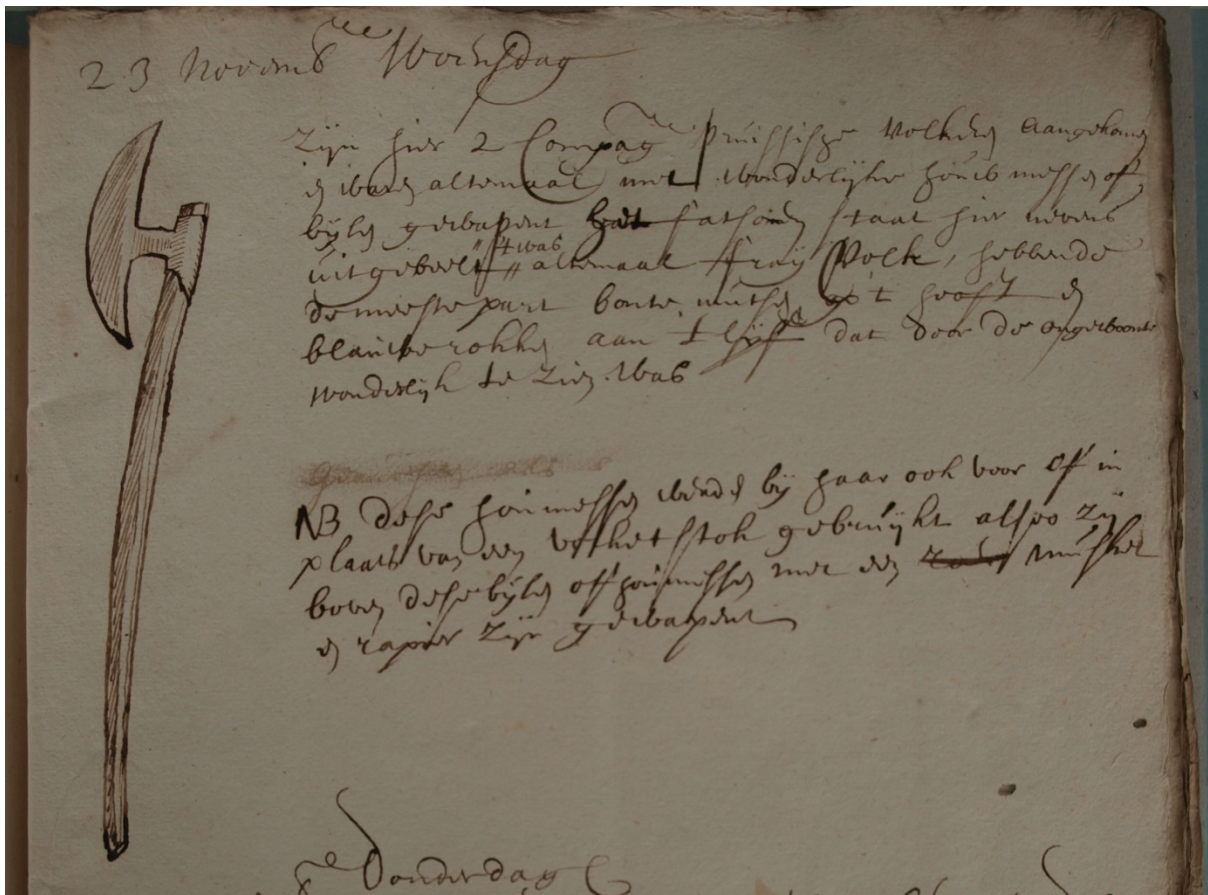 23 Novemb Woensdag
Zijn hier 2 Compag Pruissische Volken aangekomen
en waren altemaal met wonderlijke houwmessen of
bijlen gewapent het fatsoen staat hier nevens
uitgebeelt 't was altemaal fraij Volk, hebbende
de meestepart bonte mutsen op 't hooft en
blauwe rokken aan 't lijf dat door de ongewoonte
wonderlijk te zien was
NB dese houmessen werden bij haar ook voor off in
plaats van een vorketstok gebruijkt alsoo zij
boven dese bijlen off houmessen met een musket
en rapier zijn gewapent
Donderdag